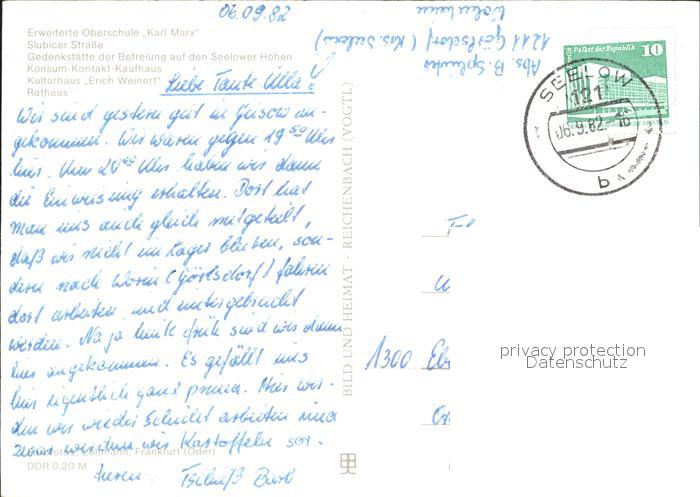 06.09.82
Erweiterte Oberschule „Karl Marx"
Slubicer Straße
Gedenkstätte der Befreiung auf den Seelower Höhen
Konsum-Kontakt-Kaufhaus
Kulturhaus „Erich Weinert"
Rathaus
Liebe Tante Ulla!
Wir sind gestern gut in Gusow an-
gekommen. Wir waren gegen 19 50 Uhr
hier. Um 20 00 Uhr haben wir dann
die Einweisung erhalten. Dort hat
man uns auch gleich mitgeteilt,
daß wir nicht im Lager bleiben, son-
dern nach Worin (Görlsdorf) fahren
dort arbeiten und untergebracht
werden. Na ja heute früh sind wir dann
hier angekommen. Es gefällt uns
hier eigentlich ganz prima. Hier wer-
den wir wieder Schicht arbeiten und
zwar werden wir Kartoffeln sor-
tieren. Tschüß
Frankfurt (Oder)
DDR 0,20 M
BILD UND HEIMAT · REICHENBACH (VOGTL)
Abs. B.
1211 Görlsdorf (Krs. Seelow)
Palast der Republik
10
SEELOW
121
06.9.82
b
1300
privacy protection
Datenschutz